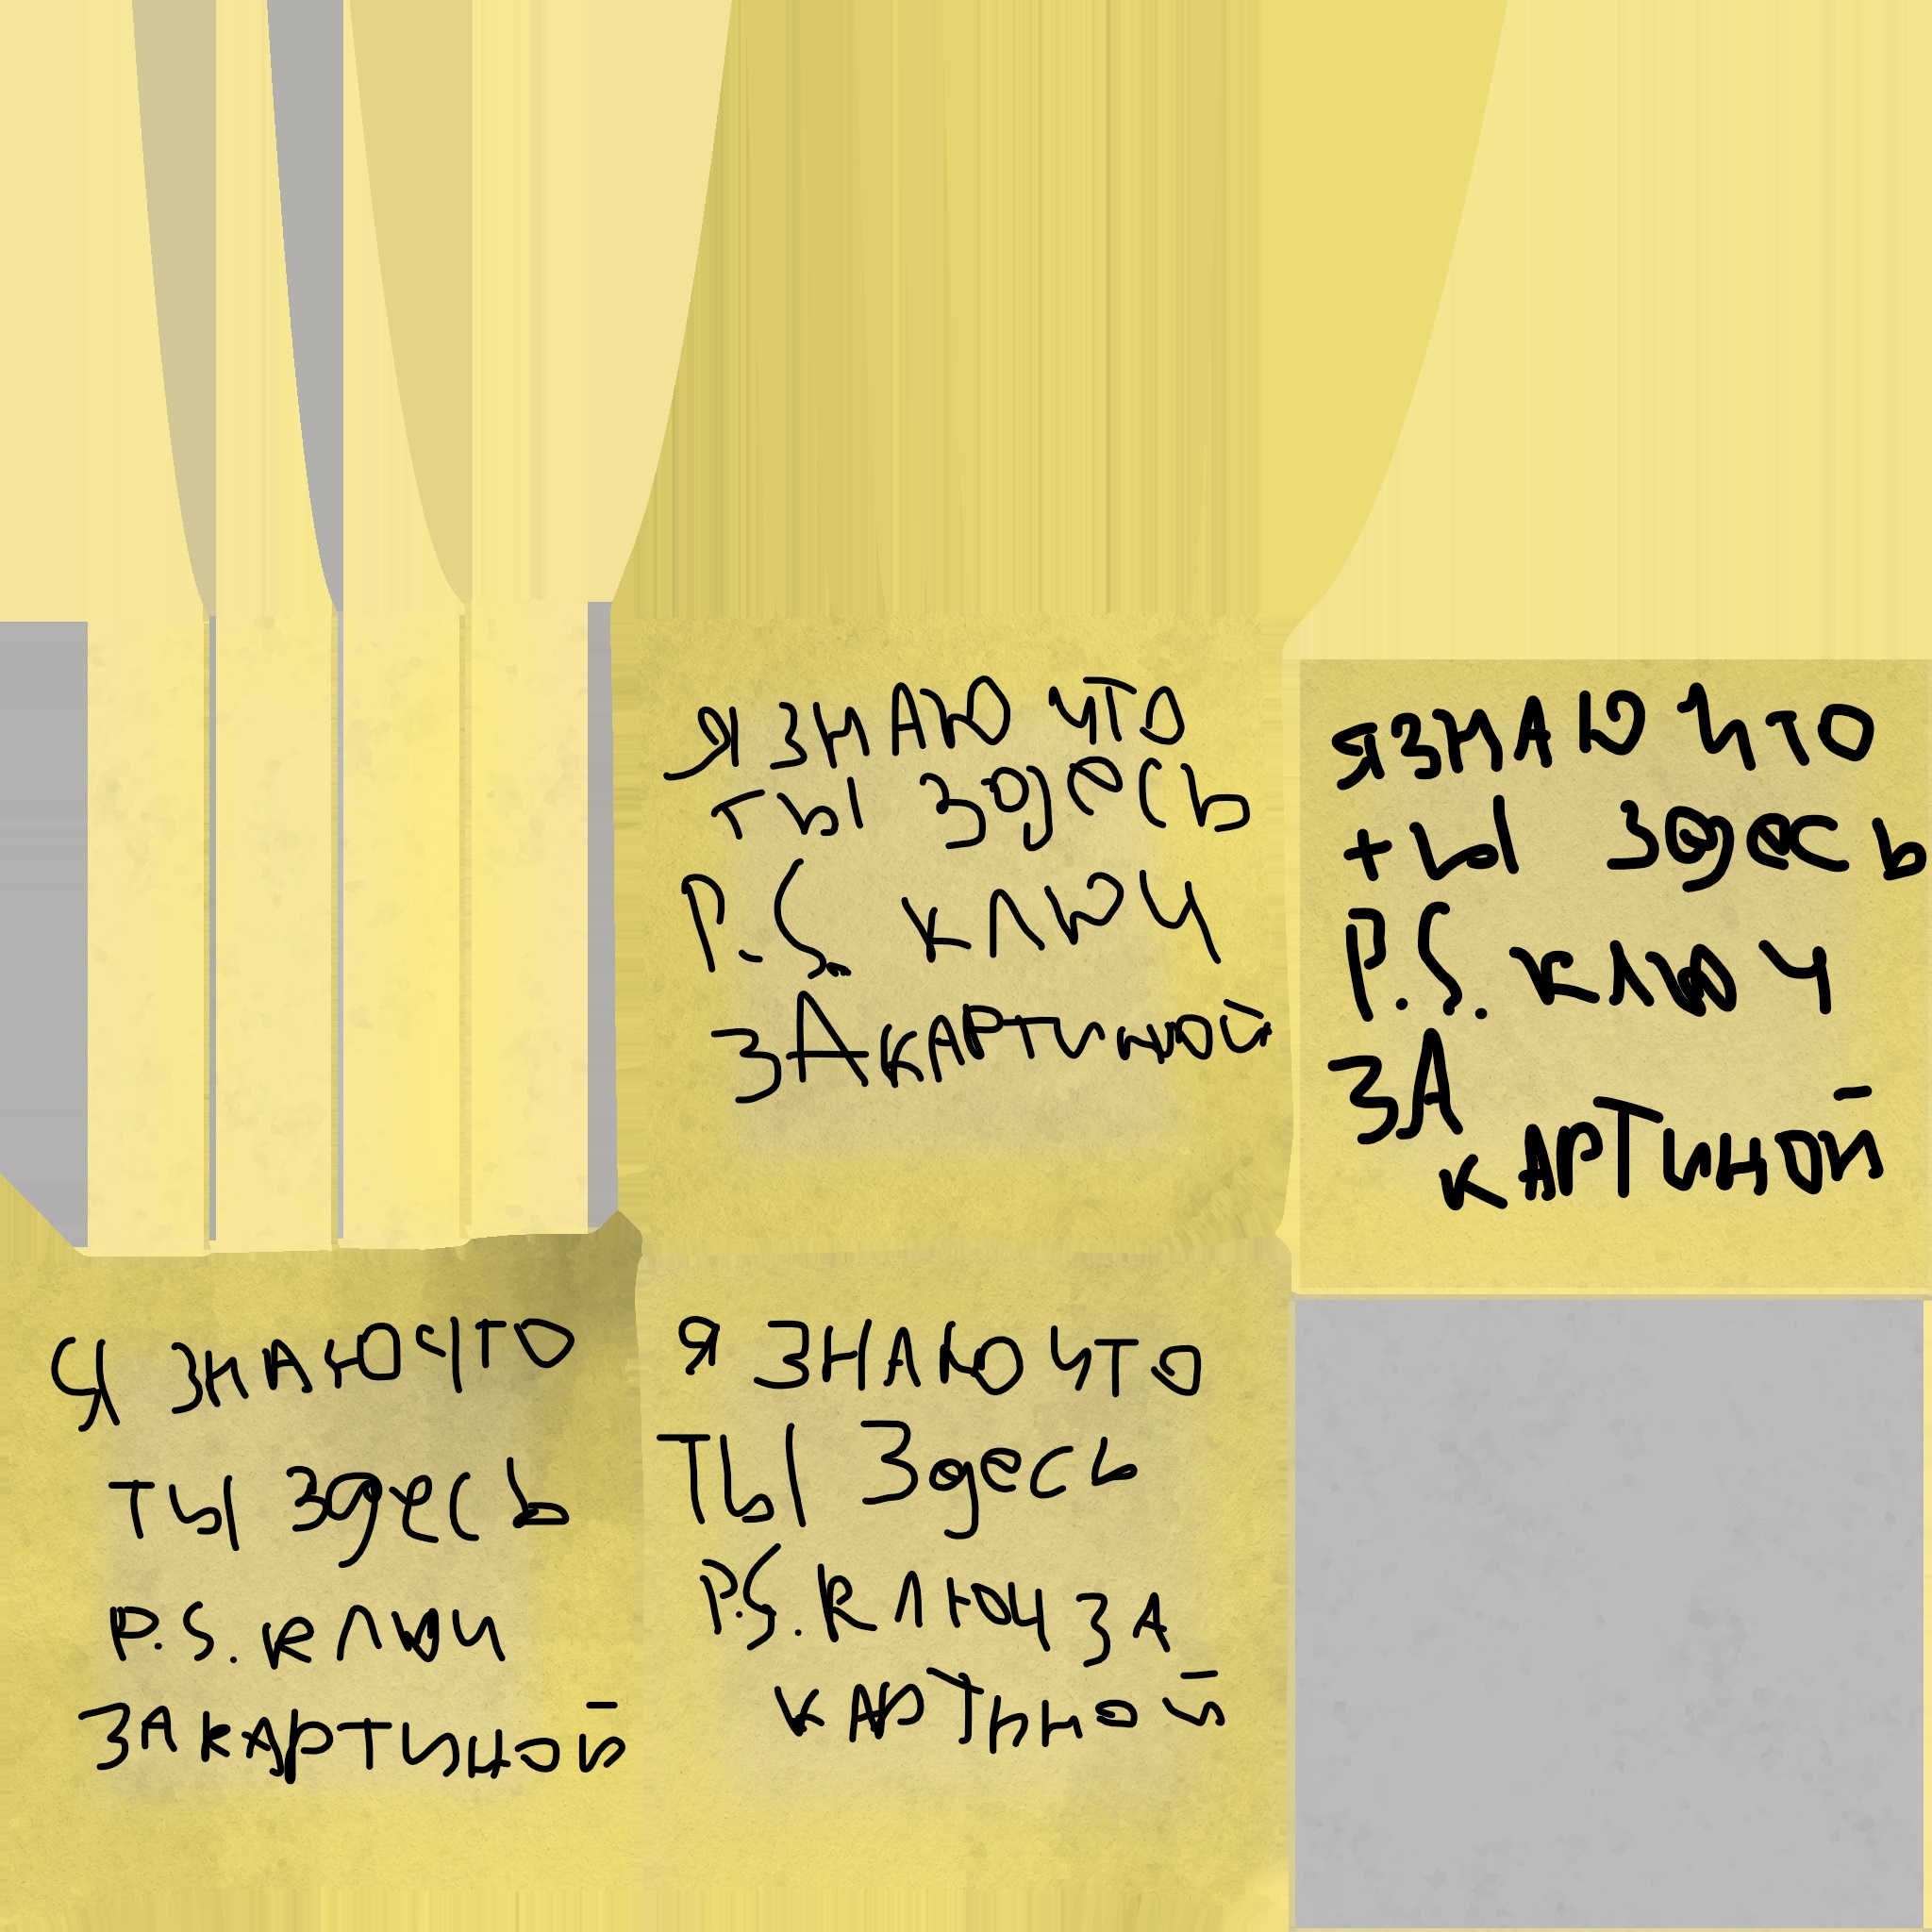 Я ЗНАЮ ЧТО
ТЫ Здесь
P.S. КЛЮЧ
ЗА КАРТИНОЙ
Я ЗНАЮ ЧТО
ты Здесь
P.S. КЛЮЧ
ЗА
КАРТИНОЙ
Я ЗНАЮ ЧТО
ТЫ Здесь
P.S. КЛЮЧ
ЗА КАРТИНОЙ
Я ЗНАЮ ЧТО
ТЫ Здесь
P.S. КЛЮЧ ЗА
КАРТИНОЙ